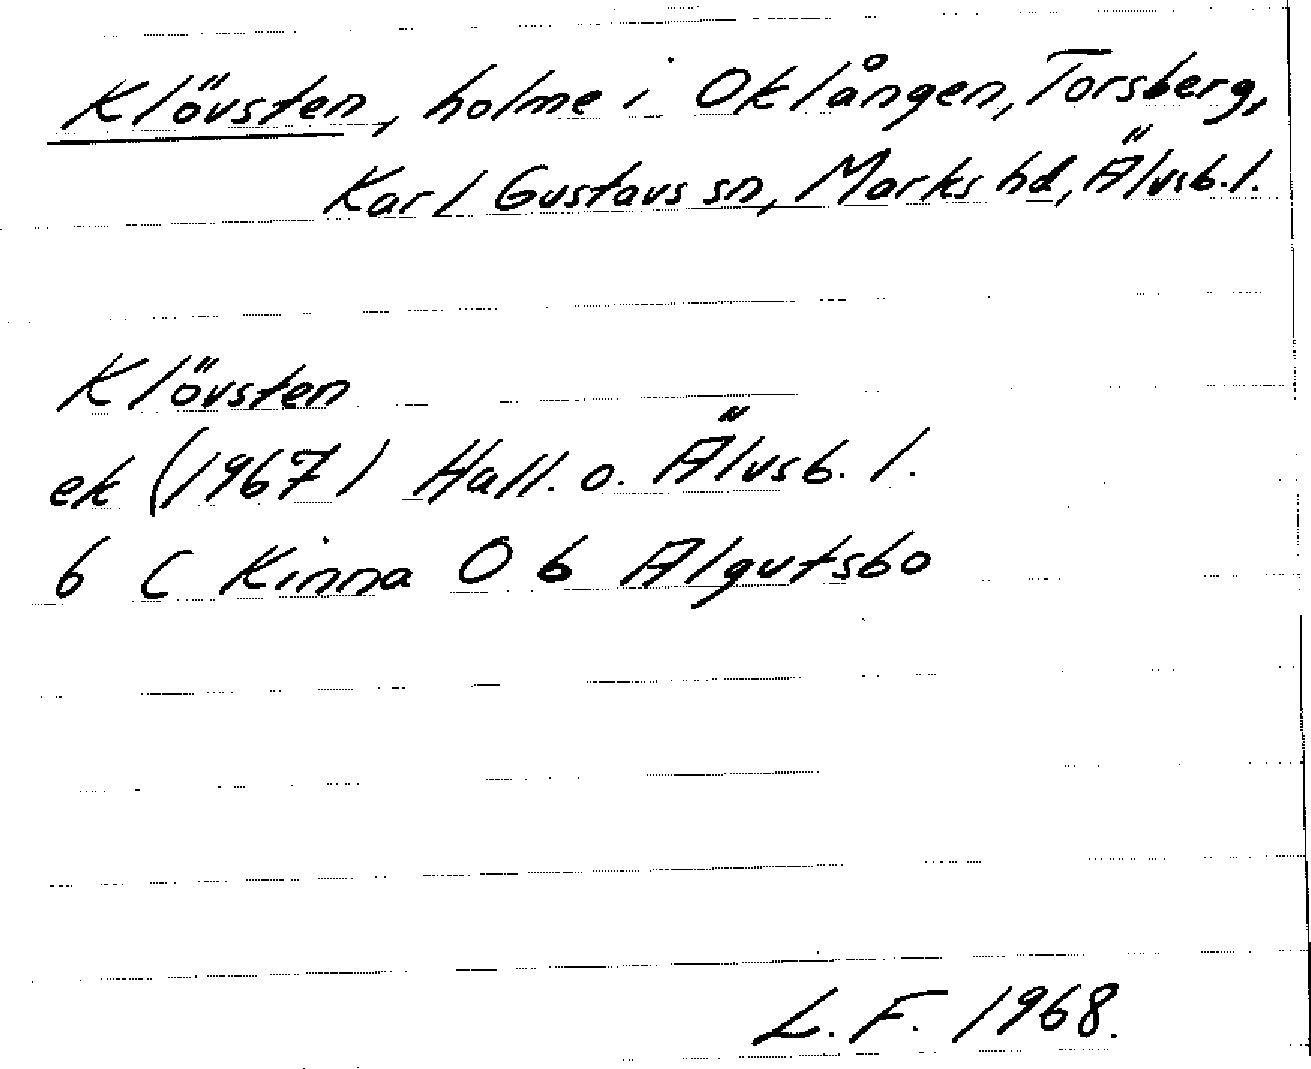 Klövsten, holme i Oklången, Torsberg,
Karl Gustavs sn, Marks hd, Älvsb. l.
Klövsten
ek (1967) Hall. o. Älvsb. l.
6 C Kinna O b Älgutsbo
L. F. 1968.